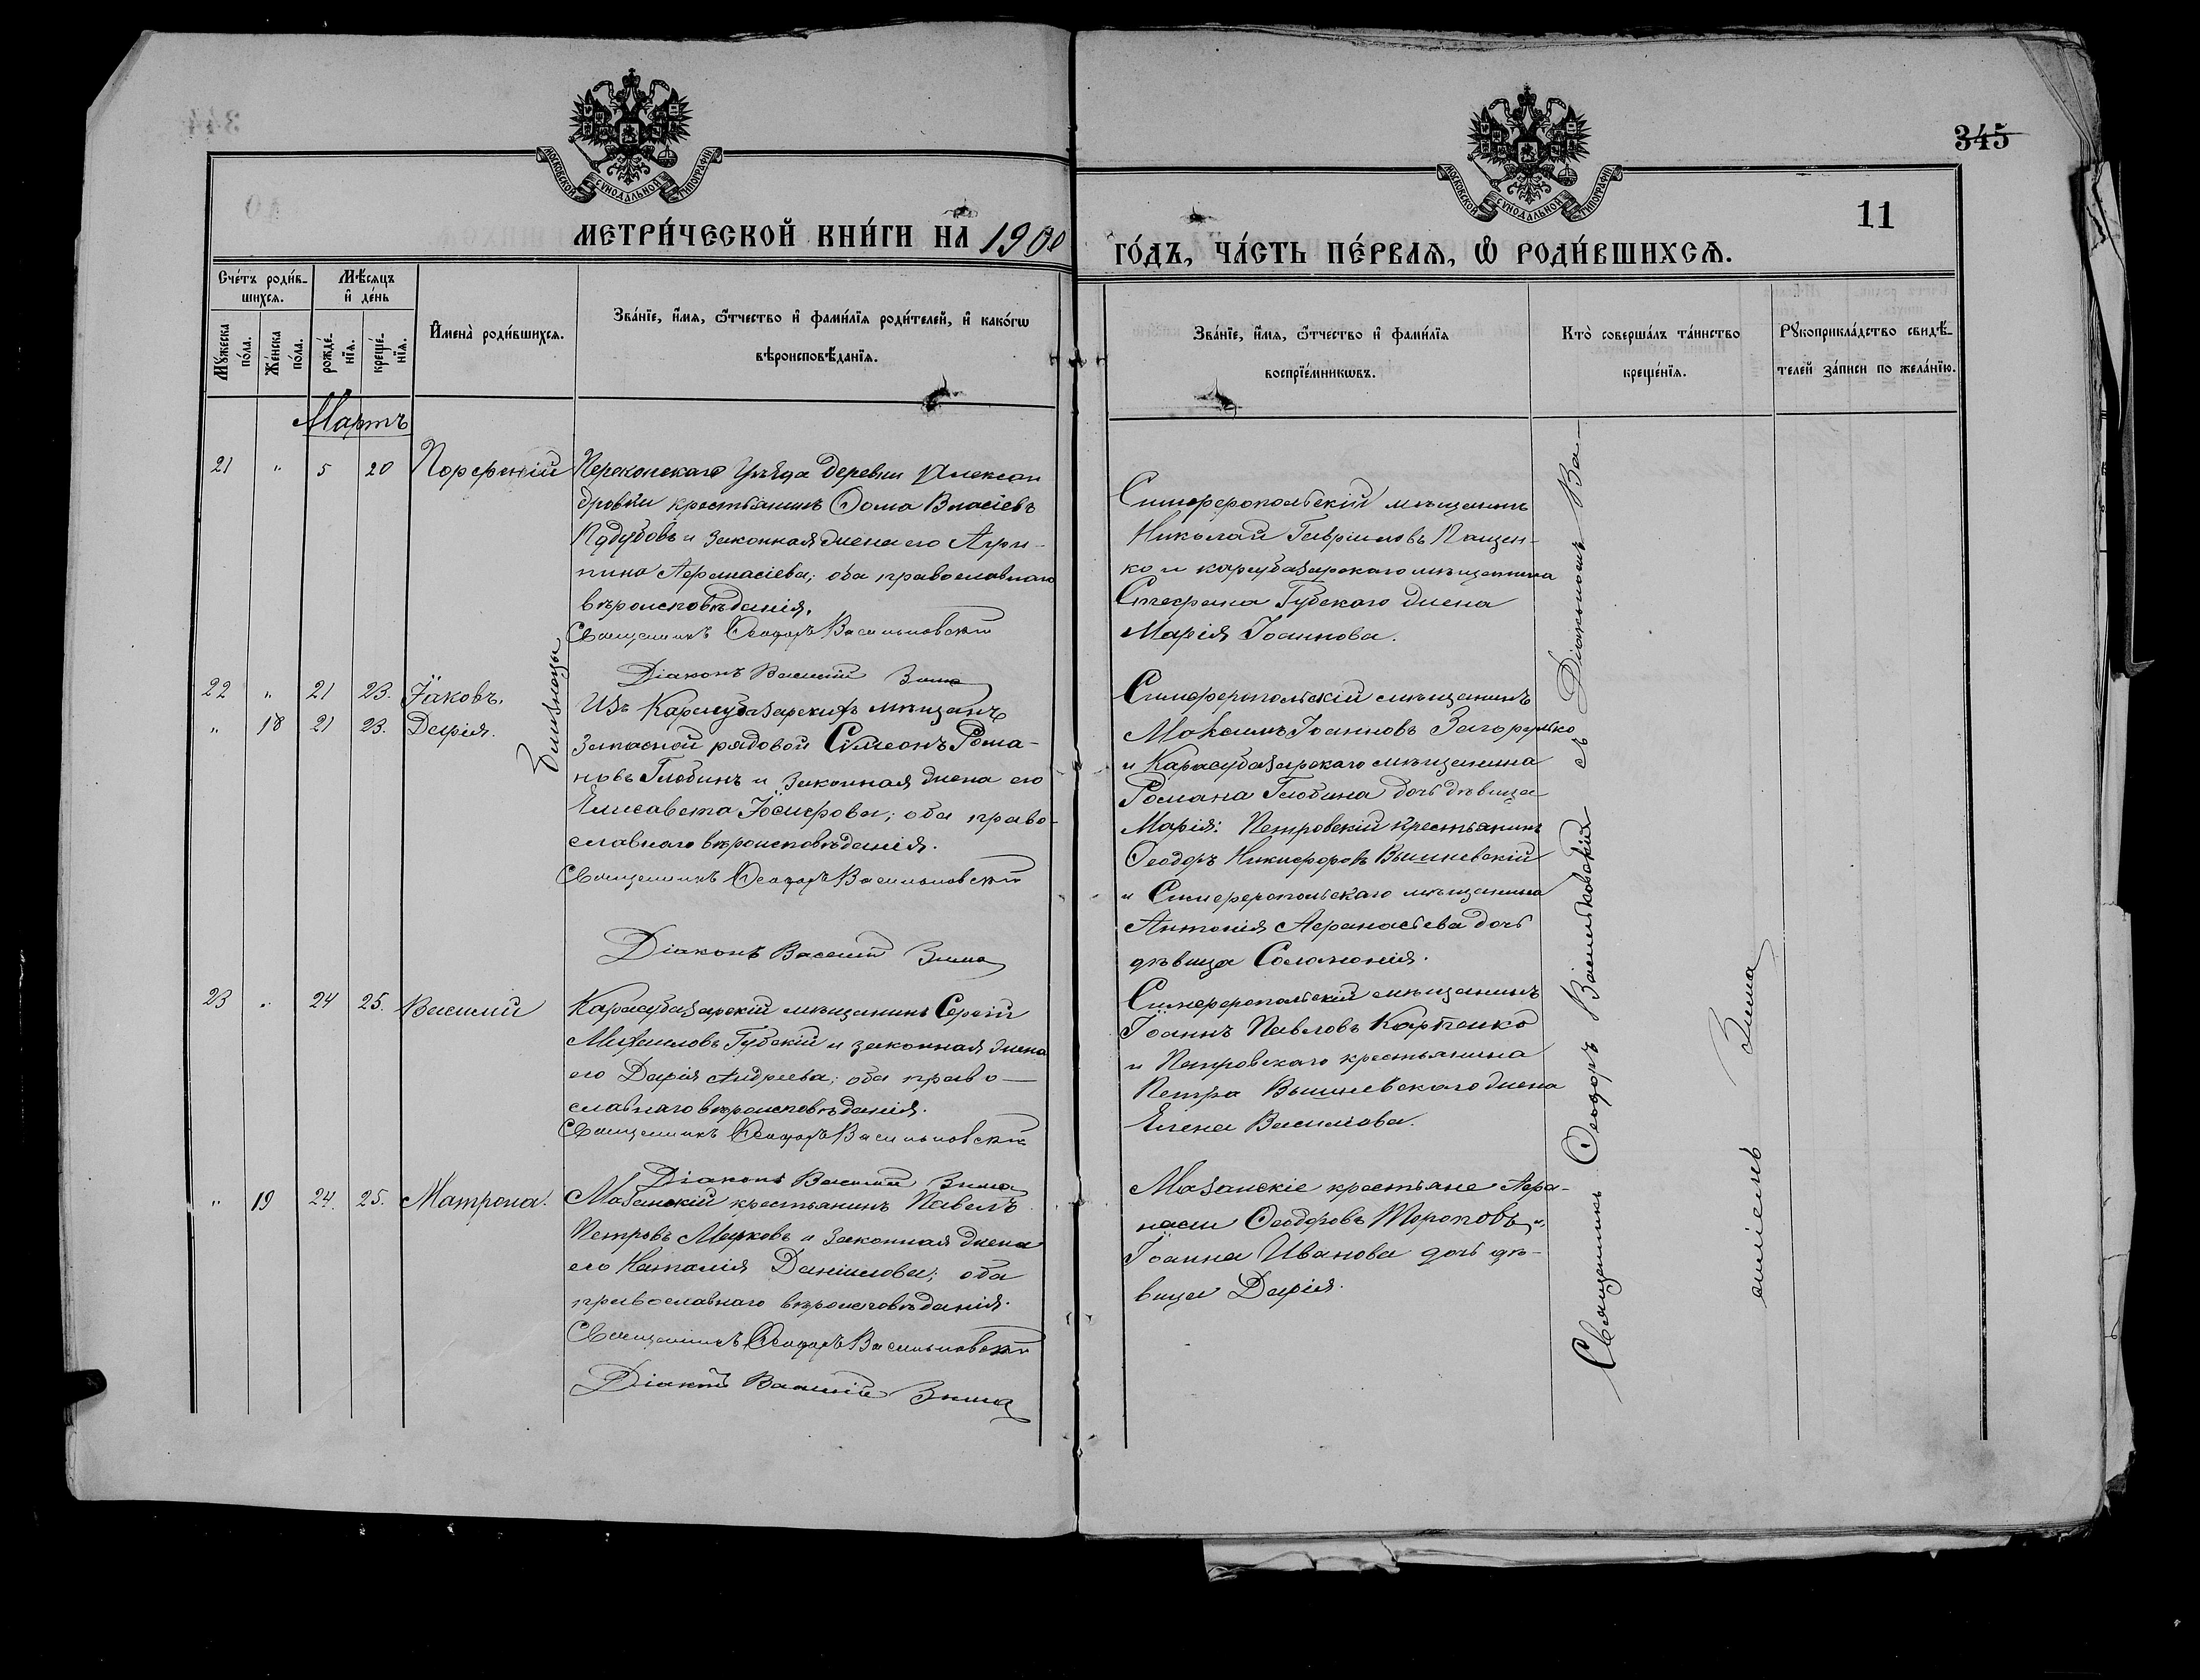 345
11
МОСКОВСКОЙ СѴНОДАЛЬНОЙ ТИПОГРАФІИ
МОСКОВСКОЙ СѴНОДАЛЬНОЙ ТИПОГРАФІИ
МЕТРИ́ЧЕСКОЙ КНИ́ГИ НА 1900
ГО́ДЪ, ЧА́СТЬ ПЕ́РВАѦ, Ѽ РОДИ́ВШИХСѦ.
Сче́тъ роди́в-
шихсѧ.
Мѣ́сяцъ
и҆ де́нь
Мꙋ́жеска
по́ла.
Же́нска
по́ла.
рожде́-
нїѧ.
креще́-
нїѧ.
И҆мена̀ роди́вшихсѧ.
Зва́нїе, и҆́мѧ, ѻ҆́тчество и҆ фами́лїѧ роди́телей, и҆ како́гѡ
вѣроисповѣ́данїѧ.
Зва́нїе, и҆́мѧ, ѻ҆́тчество и҆ фами́лїѧ
воспрїе́мникѡвъ.
Кто̀ соверша́лъ та́инство
креще́нїѧ.
Рꙋкоприкла́дство свидѣ́-
телей за́писи по жела́нїю.
Мартъ
21 " 5 20 Порфирій
Перекопскаго Уѣзда деревни Алексан
дровки крестьянинъ Ѳома Власіевъ
и законная жена его Агри-
пина Афанасіева; оба православнаго
вѣроисповѣданія.
Священникъ Ѳеодоръ Васильковскій
Діаконъ Василій Зима
Симферопольскій мѣщанинъ
Николай Гавріиловъ Пащен-
ко и карасубазарскаго мѣщанина
Стефана Губскаго жена
Марія Іоаннова.
22 " 21 23. Іаковъ.
" 18 21 23. Дарія.
Близнецы
Изъ Карасубазарскихъ мѣщанъ
запасной рядовой Симеонъ Рома-
новъ Глобинъ и законная жена его
Елисавета Іосифова; оба право-
славнаго вѣроисповѣданія.
Священникъ Ѳеодоръ Васильковскій
Діаконъ Василій Зима
Симферопольскій мѣщанинъ
Максимъ Іоанновъ Загорулько
и Карасубазарскаго мѣщанина
Романа Глобина дочь дѣвица
Марія: Петровскій крестьянинъ
Ѳеодоръ Никифоровъ Вышневскій
и Симферопольскаго мѣщанина
Антонія Афанасьева дочь
дѣвица Соломонія.
23 " 24 25. Василій
Карасубазарскій мѣщанинъ Сергій
Михаиловъ Губскій и законная жена
его Дарія Андреева; оба право-
славнаго вѣроисповѣданія.
Священникъ Ѳеодоръ Васильковскій
Діаконъ Василій Зима
Симферопольскій мѣщанинъ
Іоаннъ Павловъ Карпенко
и Петровскаго крестьянина
Петра Вышневскаго жена
Елена Василіова.
" 19 24. 25. Матрона.
Мазанскій крестьянинъ Павелъ
Петровъ Марковъ и законная жена
его Наталія Даніилова; оба
православнаго вѣроисповѣданія.
Священникъ Ѳеодоръ Васильковскій
Діаконъ Василій Зима
Мазанскіе крестьяне Афа-
насій Ѳеодоровъ Тороповъ и
Іоанна Иванова дочь дѣ-
вица Дарія.
Священникъ Ѳеодоръ Васильковскій съ Діакономъ Ва-
силіемъ Зима